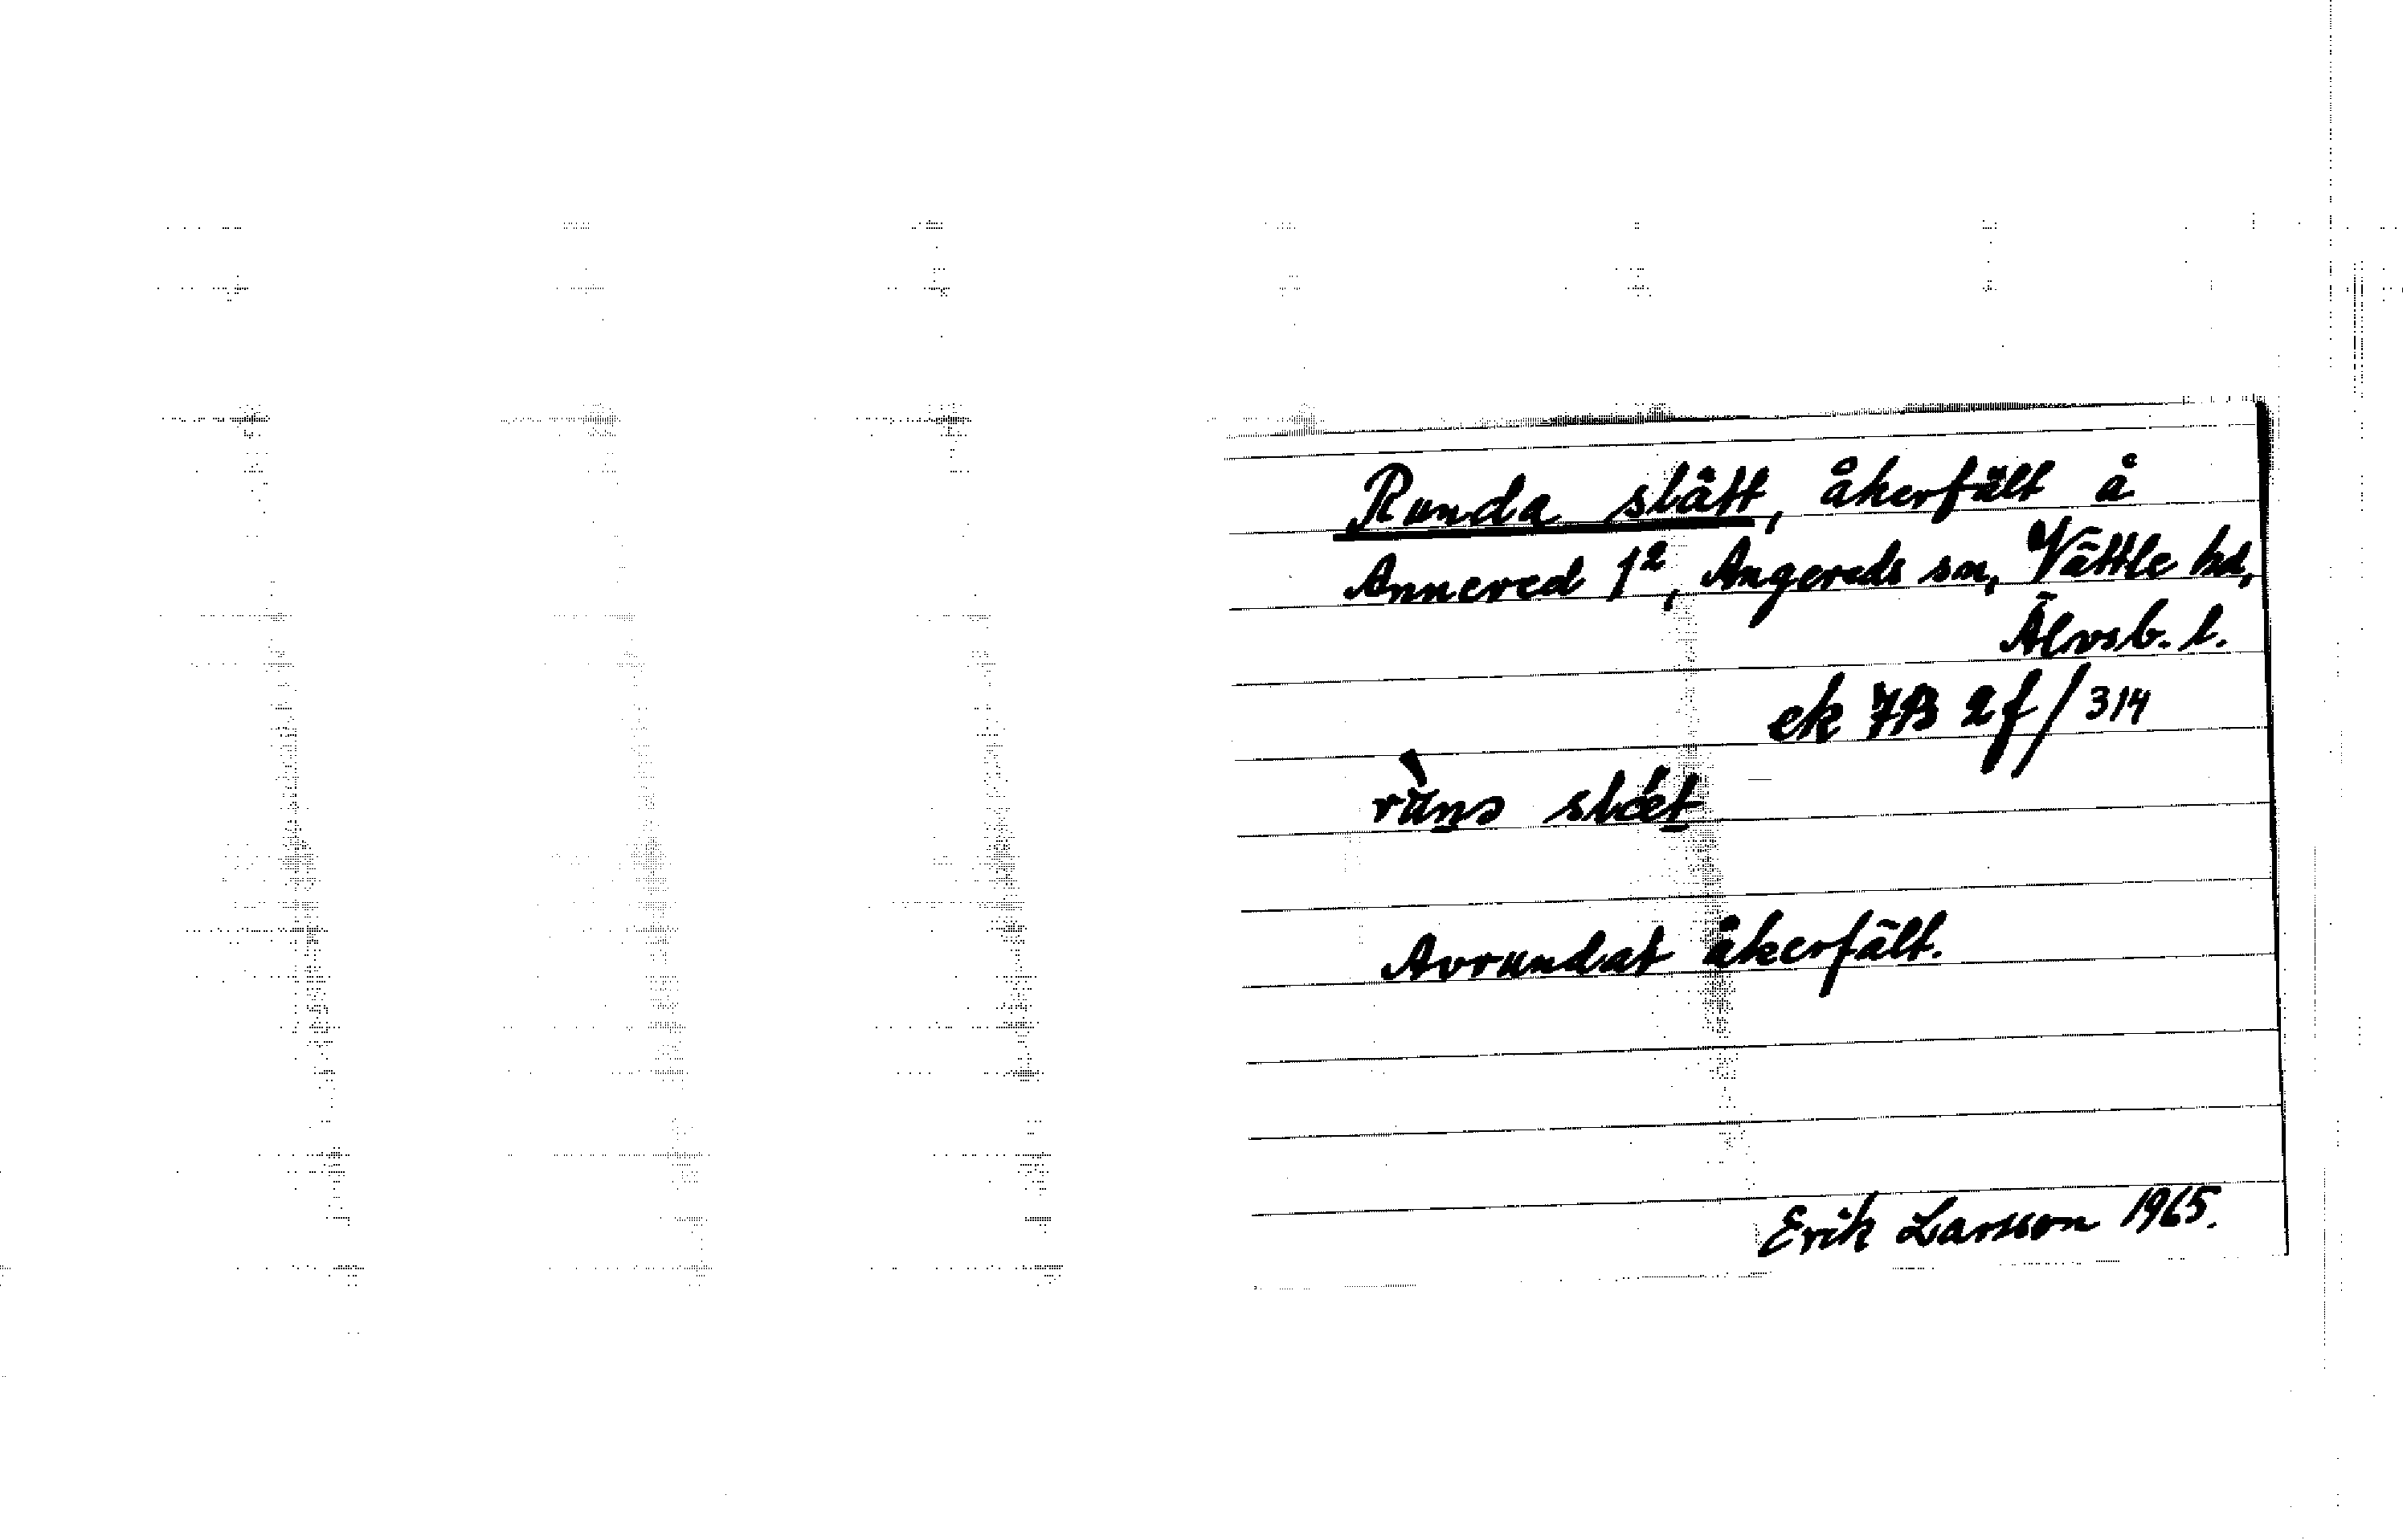 Runda slätt, åkerfält å
Annered 1², Angereds sn, Vättle hd,
Älvsb. l.
ek 7B 2f/314
Avrundat åkerfält.
Erik Larsson 1965.